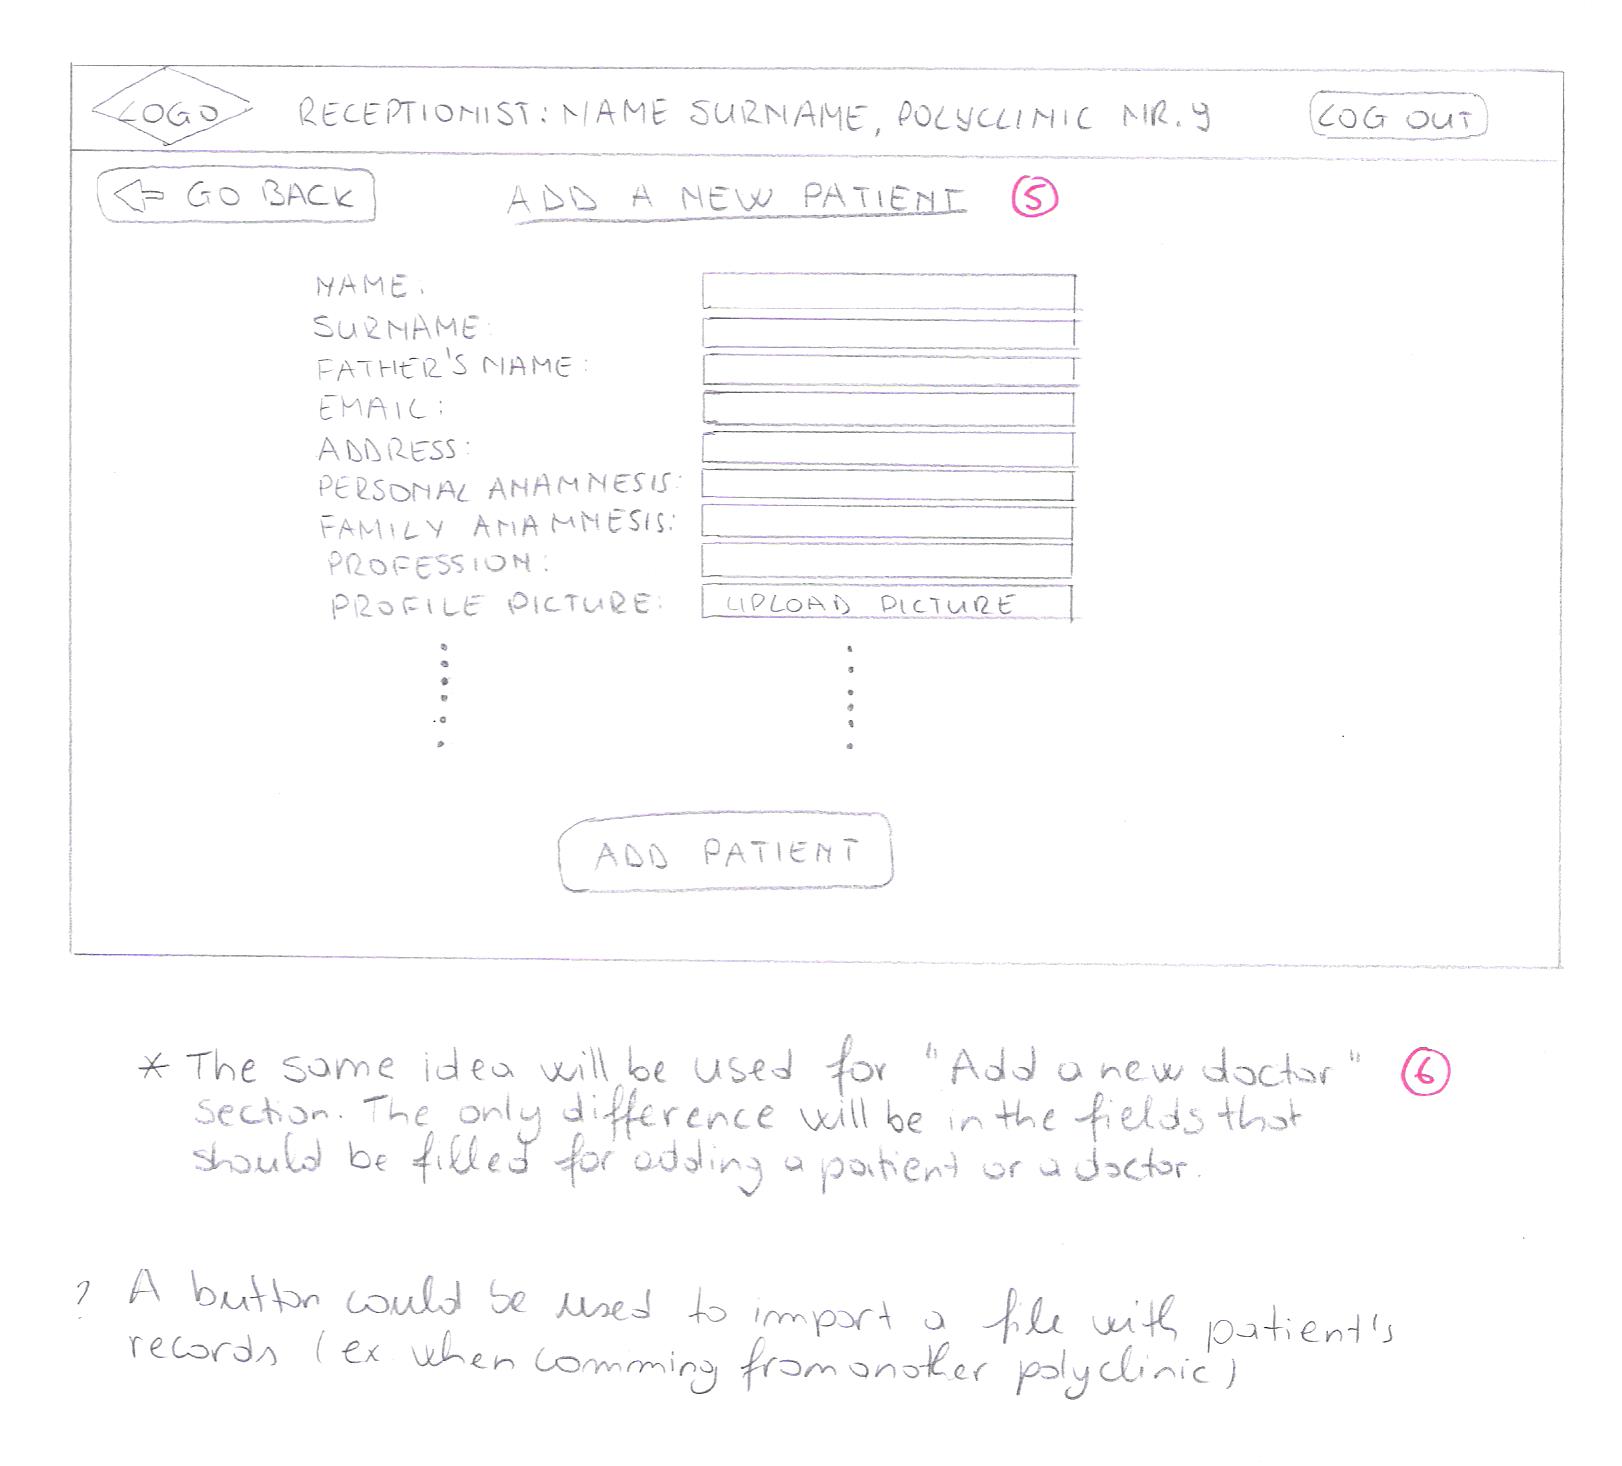 LOGO RECEPTIONIST: NAME SURNAME, POLYCLINIC NR. 9 LOG OUT
⇐ GO BACK ADD A NEW PATIENT 5
NAME:
SURNAME:
FATHER'S NAME:
EMAIL:
ADDRESS:
PERSONAL ANAMNESIS:
FAMILY ANAMNESIS:
PROFESSION:
PROFILE PICTURE: UPLOAD PICTURE
ADD PATIENT
* The same idea will be used for "Add a new doctor" 6
section. The only difference will be in the fields that
should be filled for adding a patient or a doctor.
? A button could be used to import a file with patient's
records (ex when comming from another polyclinic)